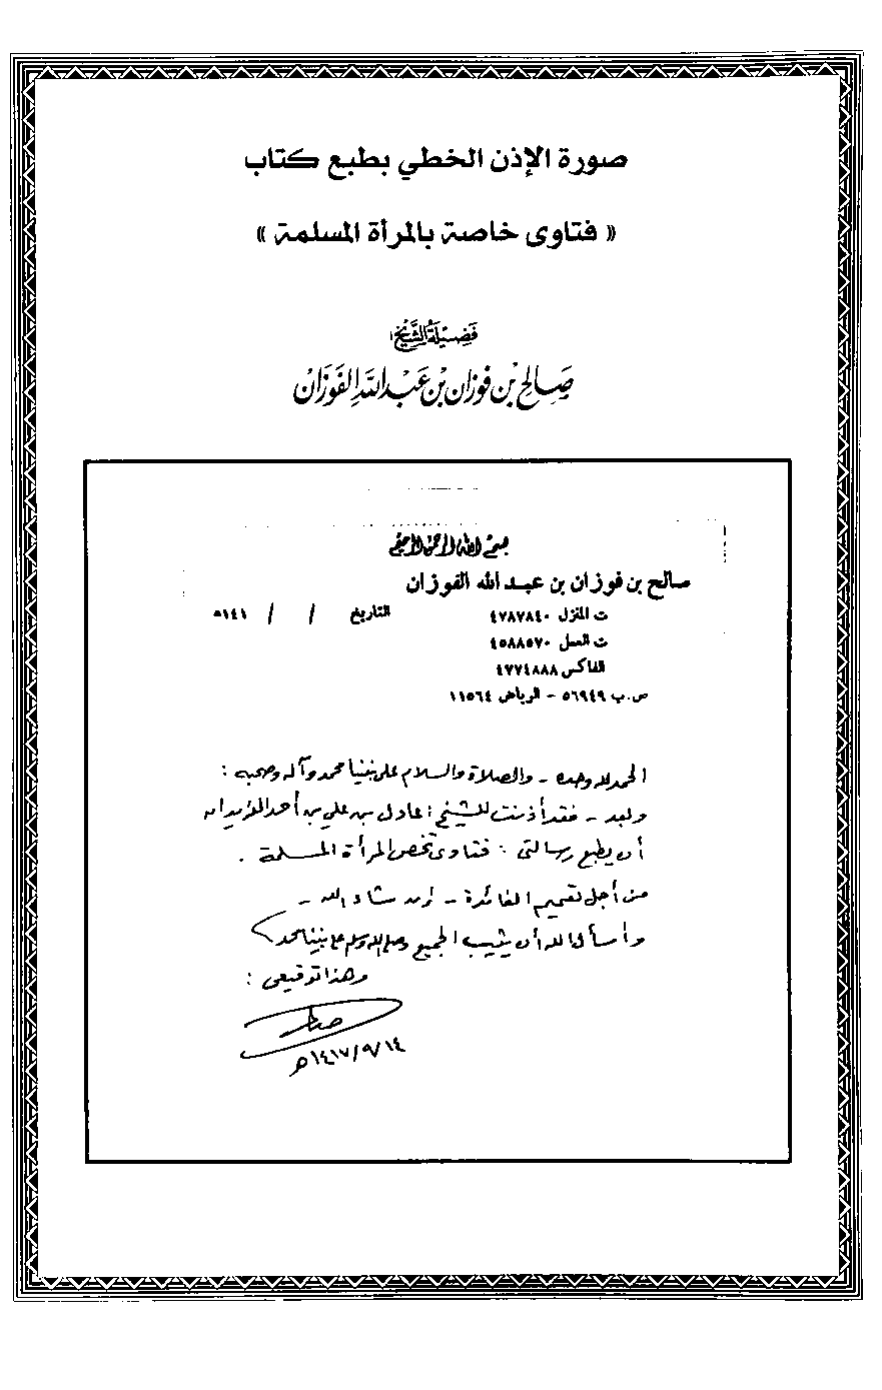 صورة الإذن الخطي بطبع كتاب
« فتاوى خاصة بالمرأة المسلمة »
فَضِيلَةُ الشَّيْخِ
صَالِح بْن فَوْزَان بْن عَبْد اللَّه الفَوْزَان
بسم الله الرحمن الرحيم
صالح بن فوزان بن عبد الله الفوزان
ت المنزل ٤٧٨٧٨٤٠ التاريخ / / ١٤١هـ
ت العمل ٤٥٨٨٥٧٠
الفاكس ٤٧٧٤٨٨٨
ص.ب ٥٦٩٤٩ - الرياض ١١٥٦٤
الحمد لله وحده - والصلاة والسلام على نبينا محمد وآله وصحبه :
وبعد - فقد أذنت للشيخ : عادل بن علي بن أحمد الفريدان
أن يطبع رسالتي : فتاوى تخص المرأة المسلمة .
من أجل تعميم الفائدة - إن شاء الله -
وأسأل الله أن يثيب الجميع وصلى الله وسلم على نبينا محمد
وهذا توقيعي :
صالح
١٤١٧/٩/١٤هـ